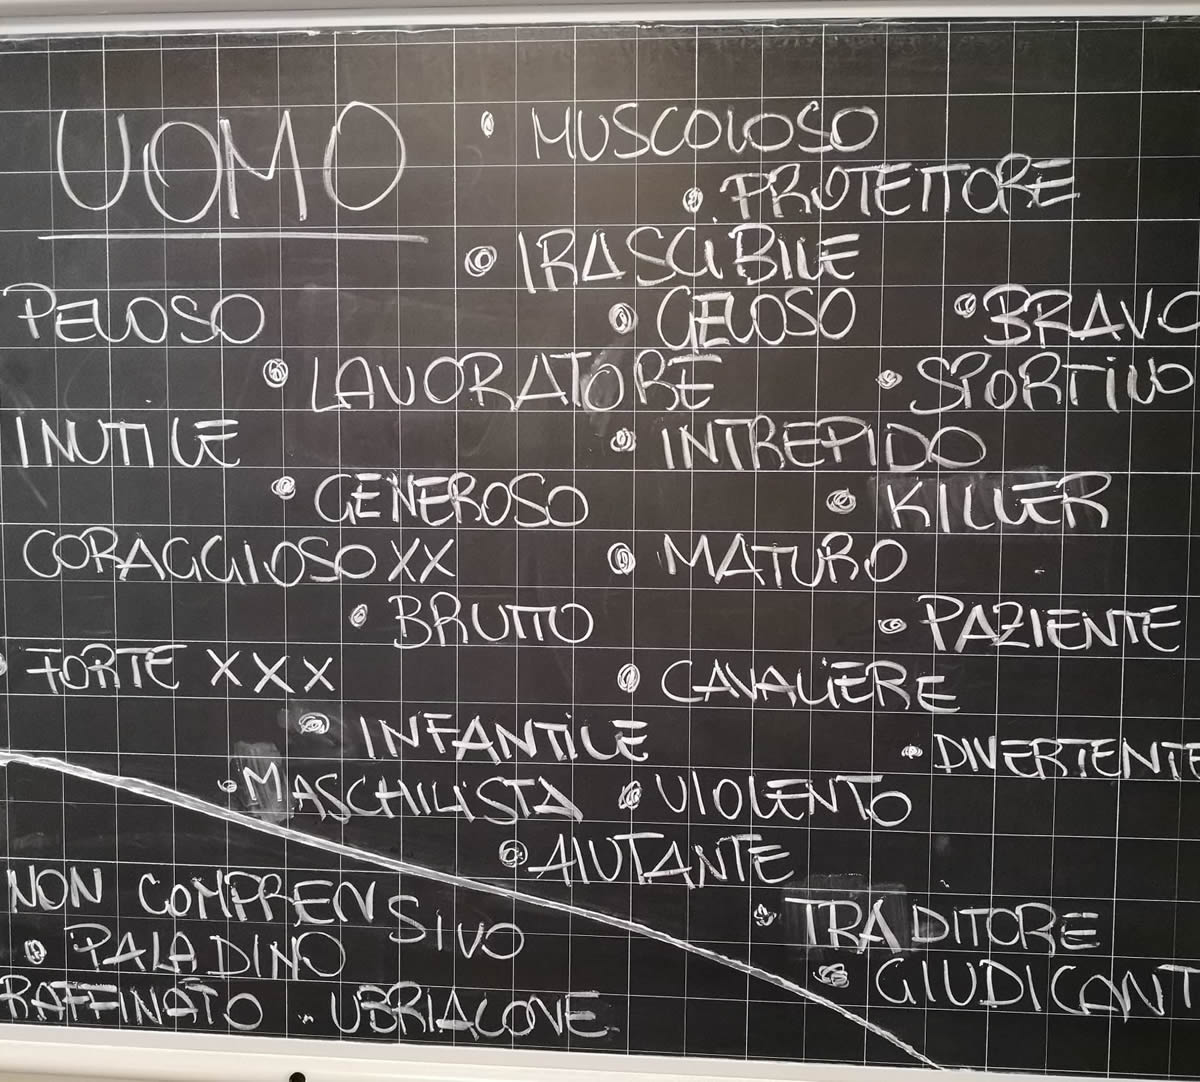 UOMO
• MUSCOLOSO
• PROTETTORE
• IRASCIBILE
PELOSO
• GELOSO
• BRAVO
• LAVORATORE
• SPORTIVO
INUTILE
• INTREPIDO
• GENEROSO
• KILLER
CORAGGIOSO XX
• MATURO
• BRUTTO
• PAZIENTE
• FORTE XXX
• CAVALIERE
• INFANTILE
• DIVERTENTE
• MASCHILISTA
• VIOLENTO
• AIUTANTE
NON COMPRENSIVO
• TRADITORE
• PALADINO
• GIUDICANT
RAFFINATO • UBRIACONE